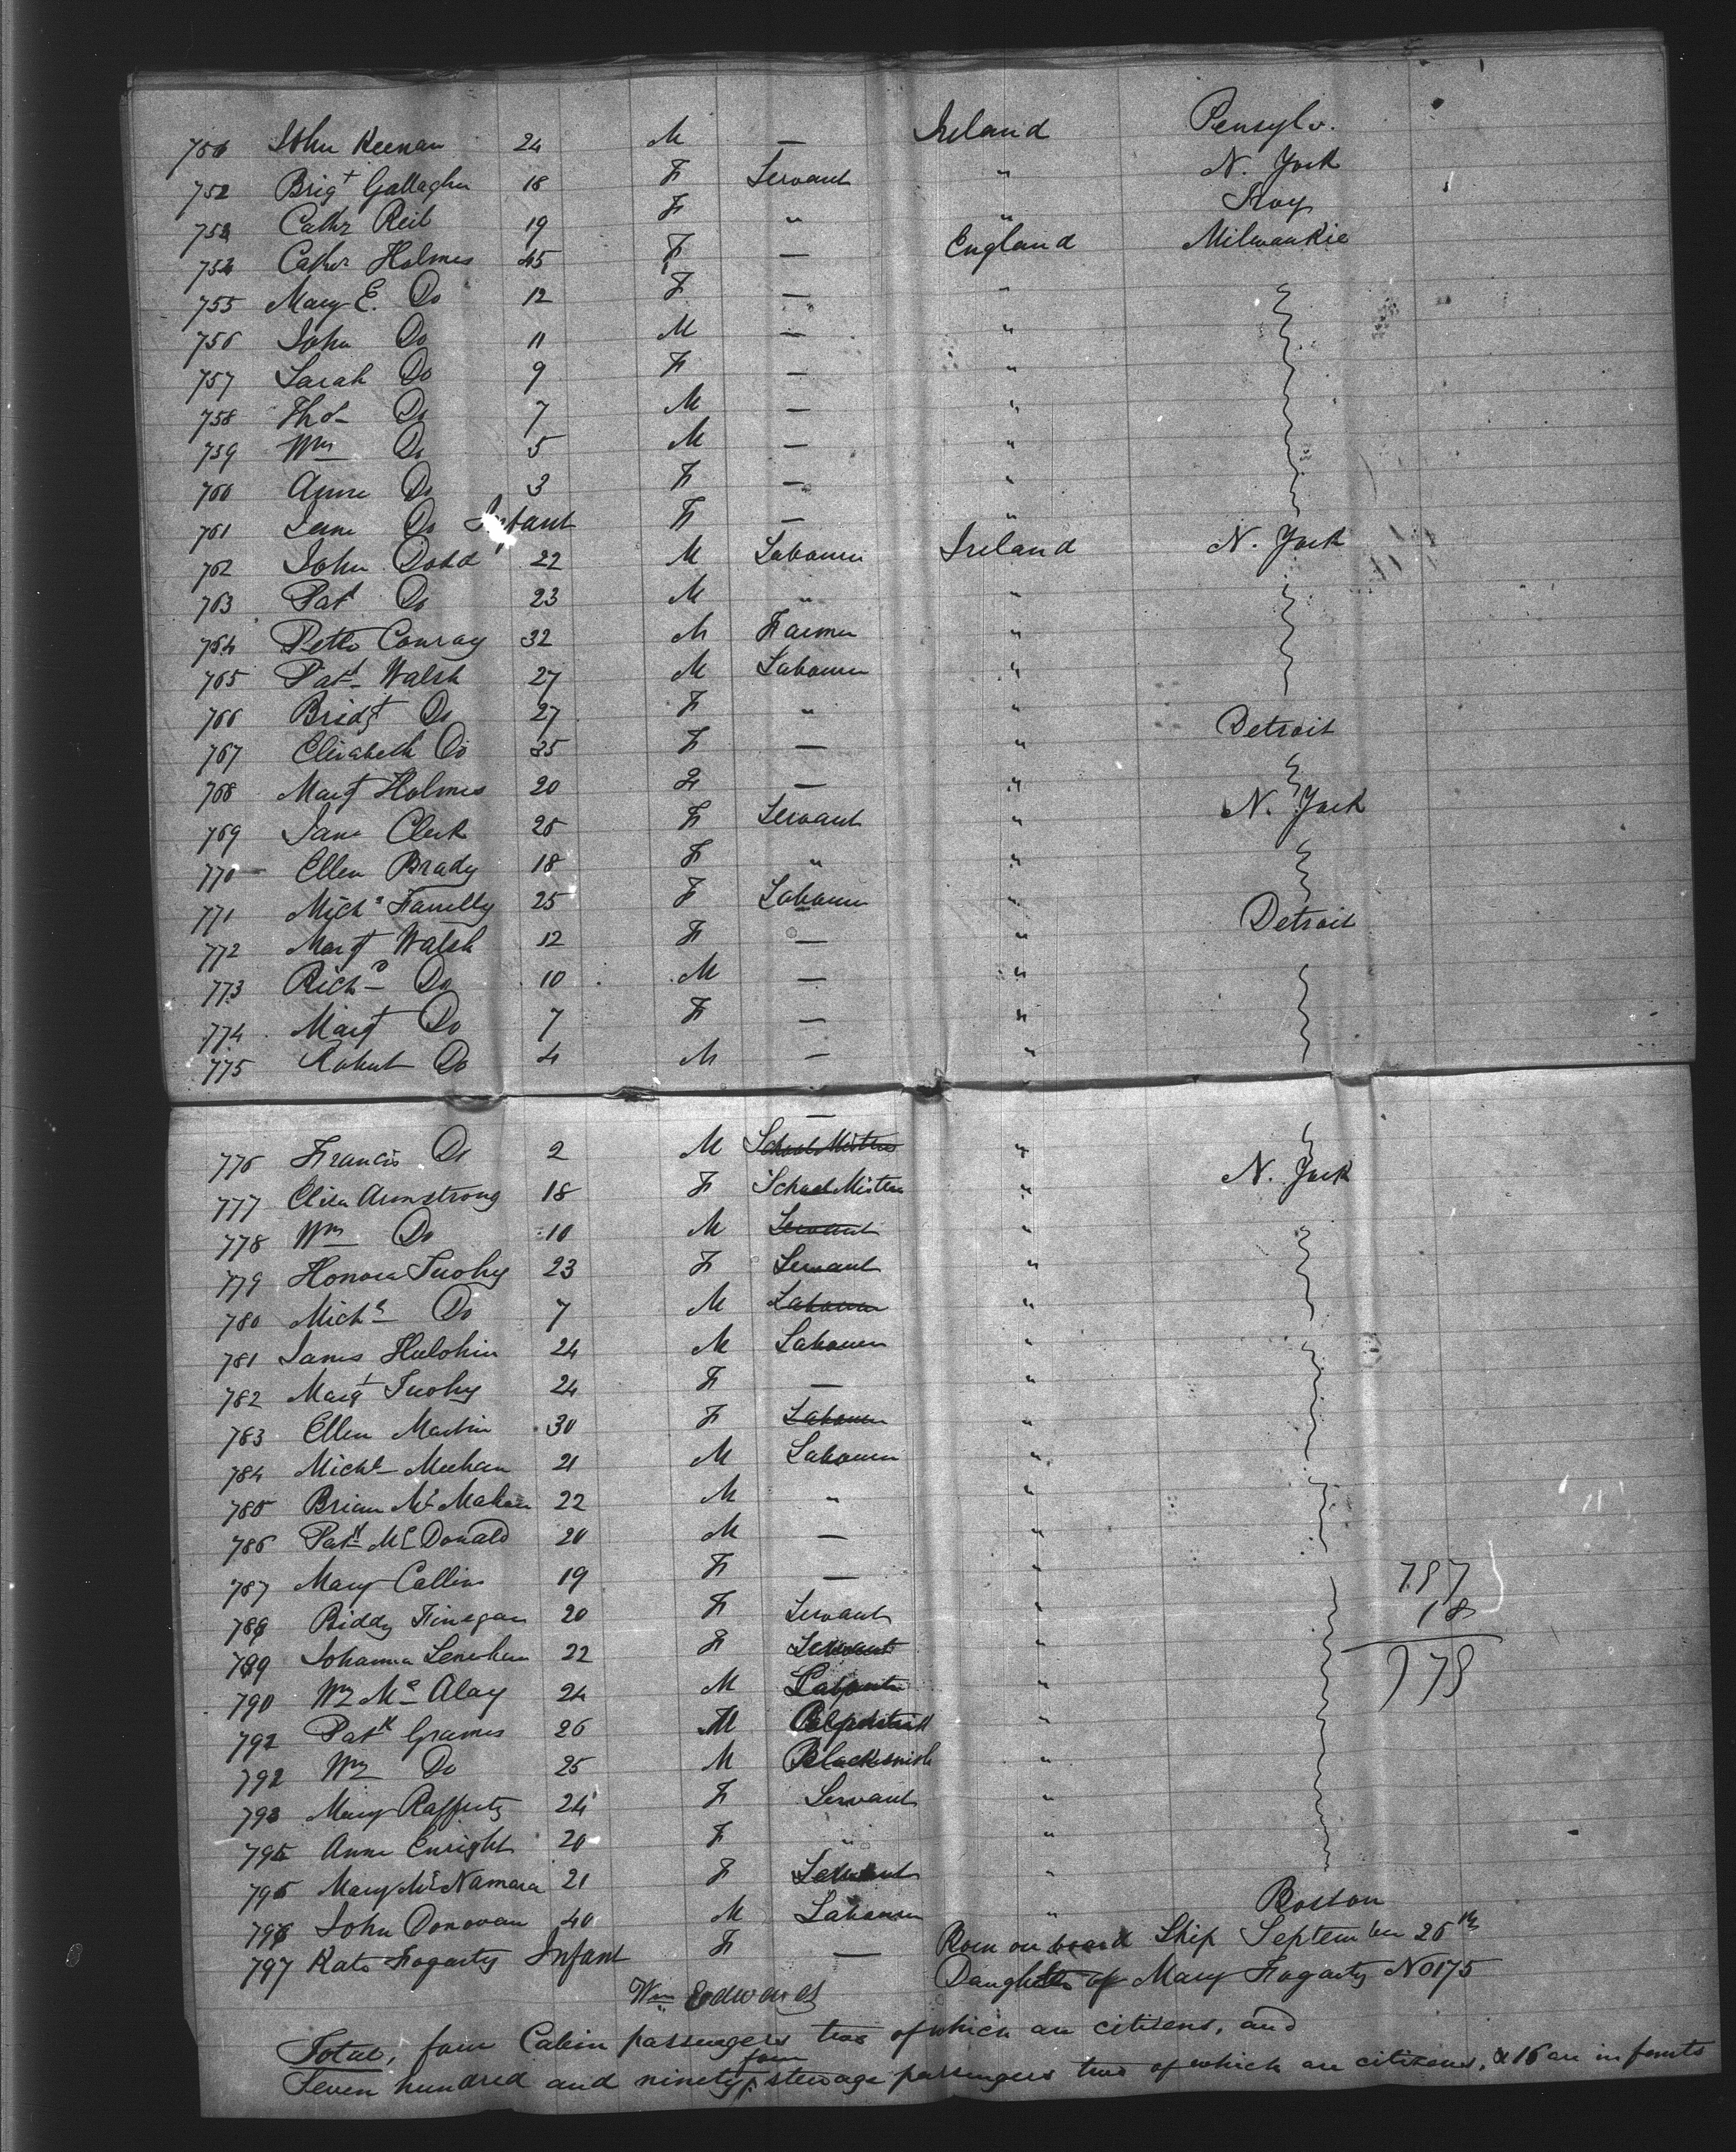 750 John Keenan 24 M — Ireland Pensylv.
752 Brigt Gallagher 18 F Servant " N. York
753 Cathr Reil 19 F " " Troy
754 Cathr Holmes 45 F — England Milwaukie
755 Mary E. Do 12 F — "
756 John Do 11 M — "
757 Sarah Do 9 F — "
758 Thos Do 7 M — "
759 Wm Do 5 M — "
760 Anne Do 3 F — "
761 Jane Do Infant F — "
762 John Dodd 22 M Labourer Ireland N. York
763 Pat Do 23 M " "
764 Peter Conray 32 M Farmer "
765 Patk Walsh 27 M Labourer "
766 Bridgt Do 27 F " "
767 Elizabeth Do 35 F — " Detroit
768 Margt Holmes 20 F — "
769 Jane Clerk 20 F Servant " N. York
770 Ellen Brady 18 F " "
771 Michl 25 F Labourer "
772 Margt Walsh 12 F — " Detroit
773 Richd Do 10 M — "
774 Margt Do 7 F — "
775 Robert Do 4 M — "
—
776 Francis Do 2 M School Mistress "
777 Eliza Armstrong 18 F School Mistress " N. York
778 Wm Do 10 M Servant "
779 Honora Tuohy 23 F Servant "
780 Michl Do 7 M Labourer "
781 James 24 M Labourer "
782 Margt Tuohy 24 F — "
783 Ellen Martin 30 F Labourer "
784 Michl Meehan 21 M Labourer "
785 Brian McMahon 22 M " "
786 Patk McDonald 20 M — "
787 Mary Collins 19 F — " 787
788 Biddy Finegan 20 F Servant " 18
789 Johanna Lenehan 22 F Servant "
790 Wm McAlay 24 M Carpenter " 778
792 Patk Grames 26 M "
792 Wm Do 25 M Blacksmith "
793 Mary Rafferty 24 F Servant "
795 Anne Enright 20 F " "
795 Mary McNamara 21 F Servant "
796 John Donovan 40 M Labourer " Boston
797 Kate Fogarty Infant F — Born on board Ship September 26th
Wm Edwards Daughter of Mary Fogarty No 175
Total, four Cabin passengers two of which are citizens, and
Seven hundred and ninety four steerage passengers two of which are citizens, & 16 are infants